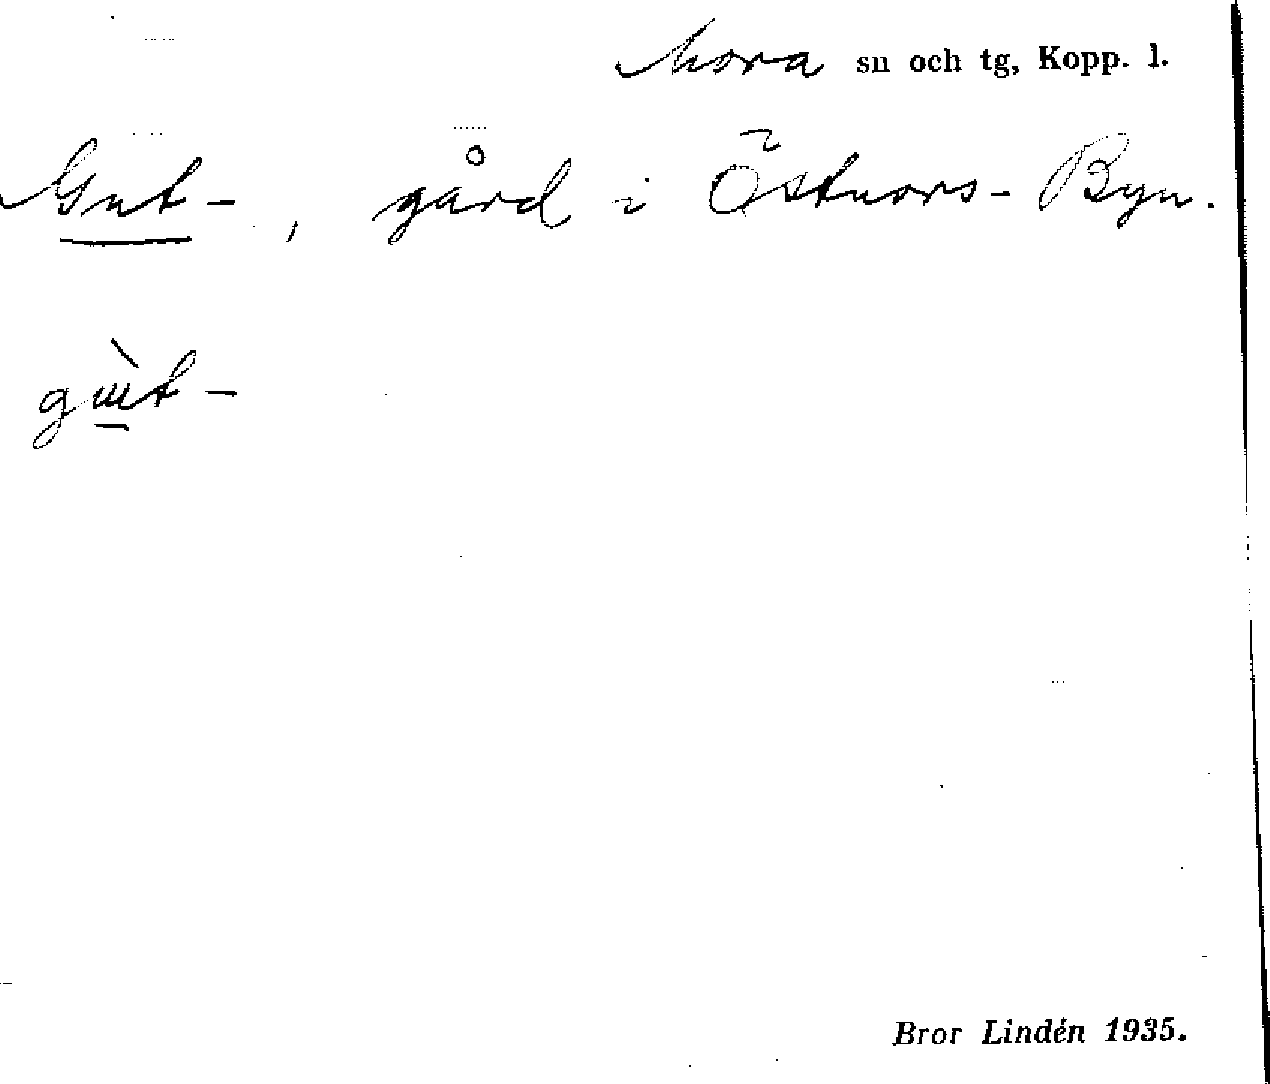 Mora sn och tg, Kopp. l.
Gut-, gård i Östnors-Byn.
gɯ̀t-
Bror Lindén 1935.